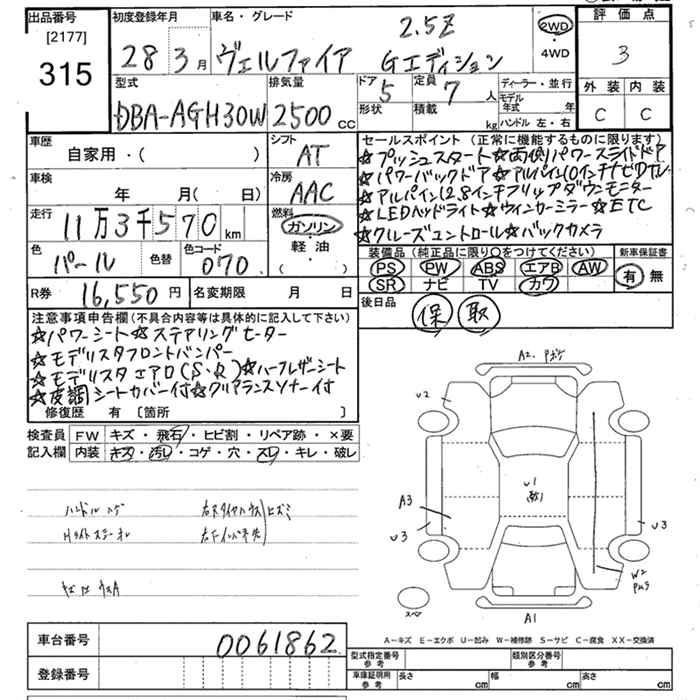 出品番号 初度登録年月 車名・グレード 評価点
[2177] 315
28年 3月 ヴェルファイア 2.5Z Gエディション 2WD・4WD 3
型式 排気量 ドア 形状 定員 積載 ディーラー・並行 外装 内装
DBA-AGH30W 2500cc 5 7人 kg モデル年式 年 C C
ハンドル 左・右
車歴 自家用・( ) シフト AT
セールスポイント (正常に機能するものに限ります)
☆プッシュスタート☆両側パワースライドドア
☆パワーバックドア☆アルパイン10インチナビDTV
☆アルパイン12.8インチフリップダウンモニター
☆LEDヘッドライト☆ウィンカーミラー☆ETC
☆クルーズコントロール☆バックカメラ
車検 年 月( 日) 冷房 AAC
走行 11万3千570km 燃料 ガソリン・軽油・( )
色 パール 色替 色コード 070
装備品 (純正品に限り○をつけてください) 新車保証書
PS PW ABS エアB AW 有・無
SR ナビ TV カワ
R券 16,550円 名変期限 月 日
後日品 保 取
注意事項申告欄(不具合内容等は具体的に記入して下さい)
☆パワーシート☆ステアリングヒーター
☆モデリスタフロントバンパー
☆モデリスタエアロ(S・R)☆ハーフレザーシート
☆皮調シートカバー付☆クリアランスソナー付
修復歴 有 [箇所 ]
検査員記入欄 FW キズ・飛石・ヒビ割・リペア跡・×要
内装 キズ・汚レ・コゲ・穴・スレ・キレ・破レ
ハンドルハゲ
A2.
U2
U1
A3
U3
U3
W2
A1
スペア
A-キズ E-エクボ U-凹み W-補修跡 S-サビ C-腐食 XX-交換済
車台番号 0061862
登録番号
型式指定番号 参考 類別区分番号 参考
車庫証明用 参考 長さ cm 幅 cm 高さ cm